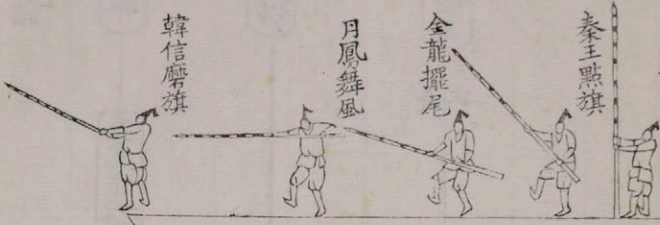 秦王點旗
金龍擺尾
丹鳳舞風
韓信磨旗